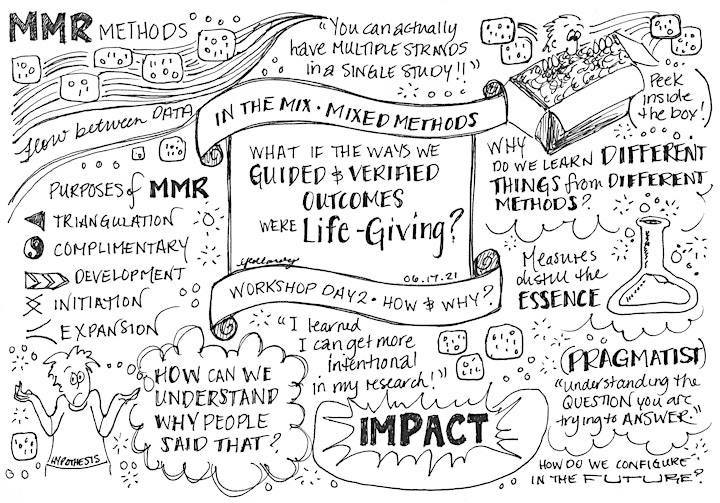 MMR METHODS
"You can actually
have MULTIPLE STRANDS
in a SINGLE STUDY!!"
Peek
inside
the box!
flow between DATA
IN THE MIX • MIXED METHODS
WHAT IF THE WAYS WE
GUIDED & VERIFIED
OUTCOMES
WERE Life-Giving?
06.17.21
WORKSHOP DAY 2 • HOW & WHY?
WHY
DO WE LEARN DIFFERENT
THINGS from DIFFERENT
METHODS?
PURPOSES of MMR
TRIANGULATION
COMPLIMENTARY
DEVELOPMENT
INITIATION
EXPANSION
Measures
distill the
ESSENCE
"I learned
I can get more
intentional
in my research!"
HYPOTHESIS
HOW CAN WE
UNDERSTAND
WHY PEOPLE
SAID THAT?
IMPACT
(PRAGMATIST)
"understanding the
QUESTION you are
trying to ANSWER."
HOW DO WE CONFIGURE
IN THE FUTURE?